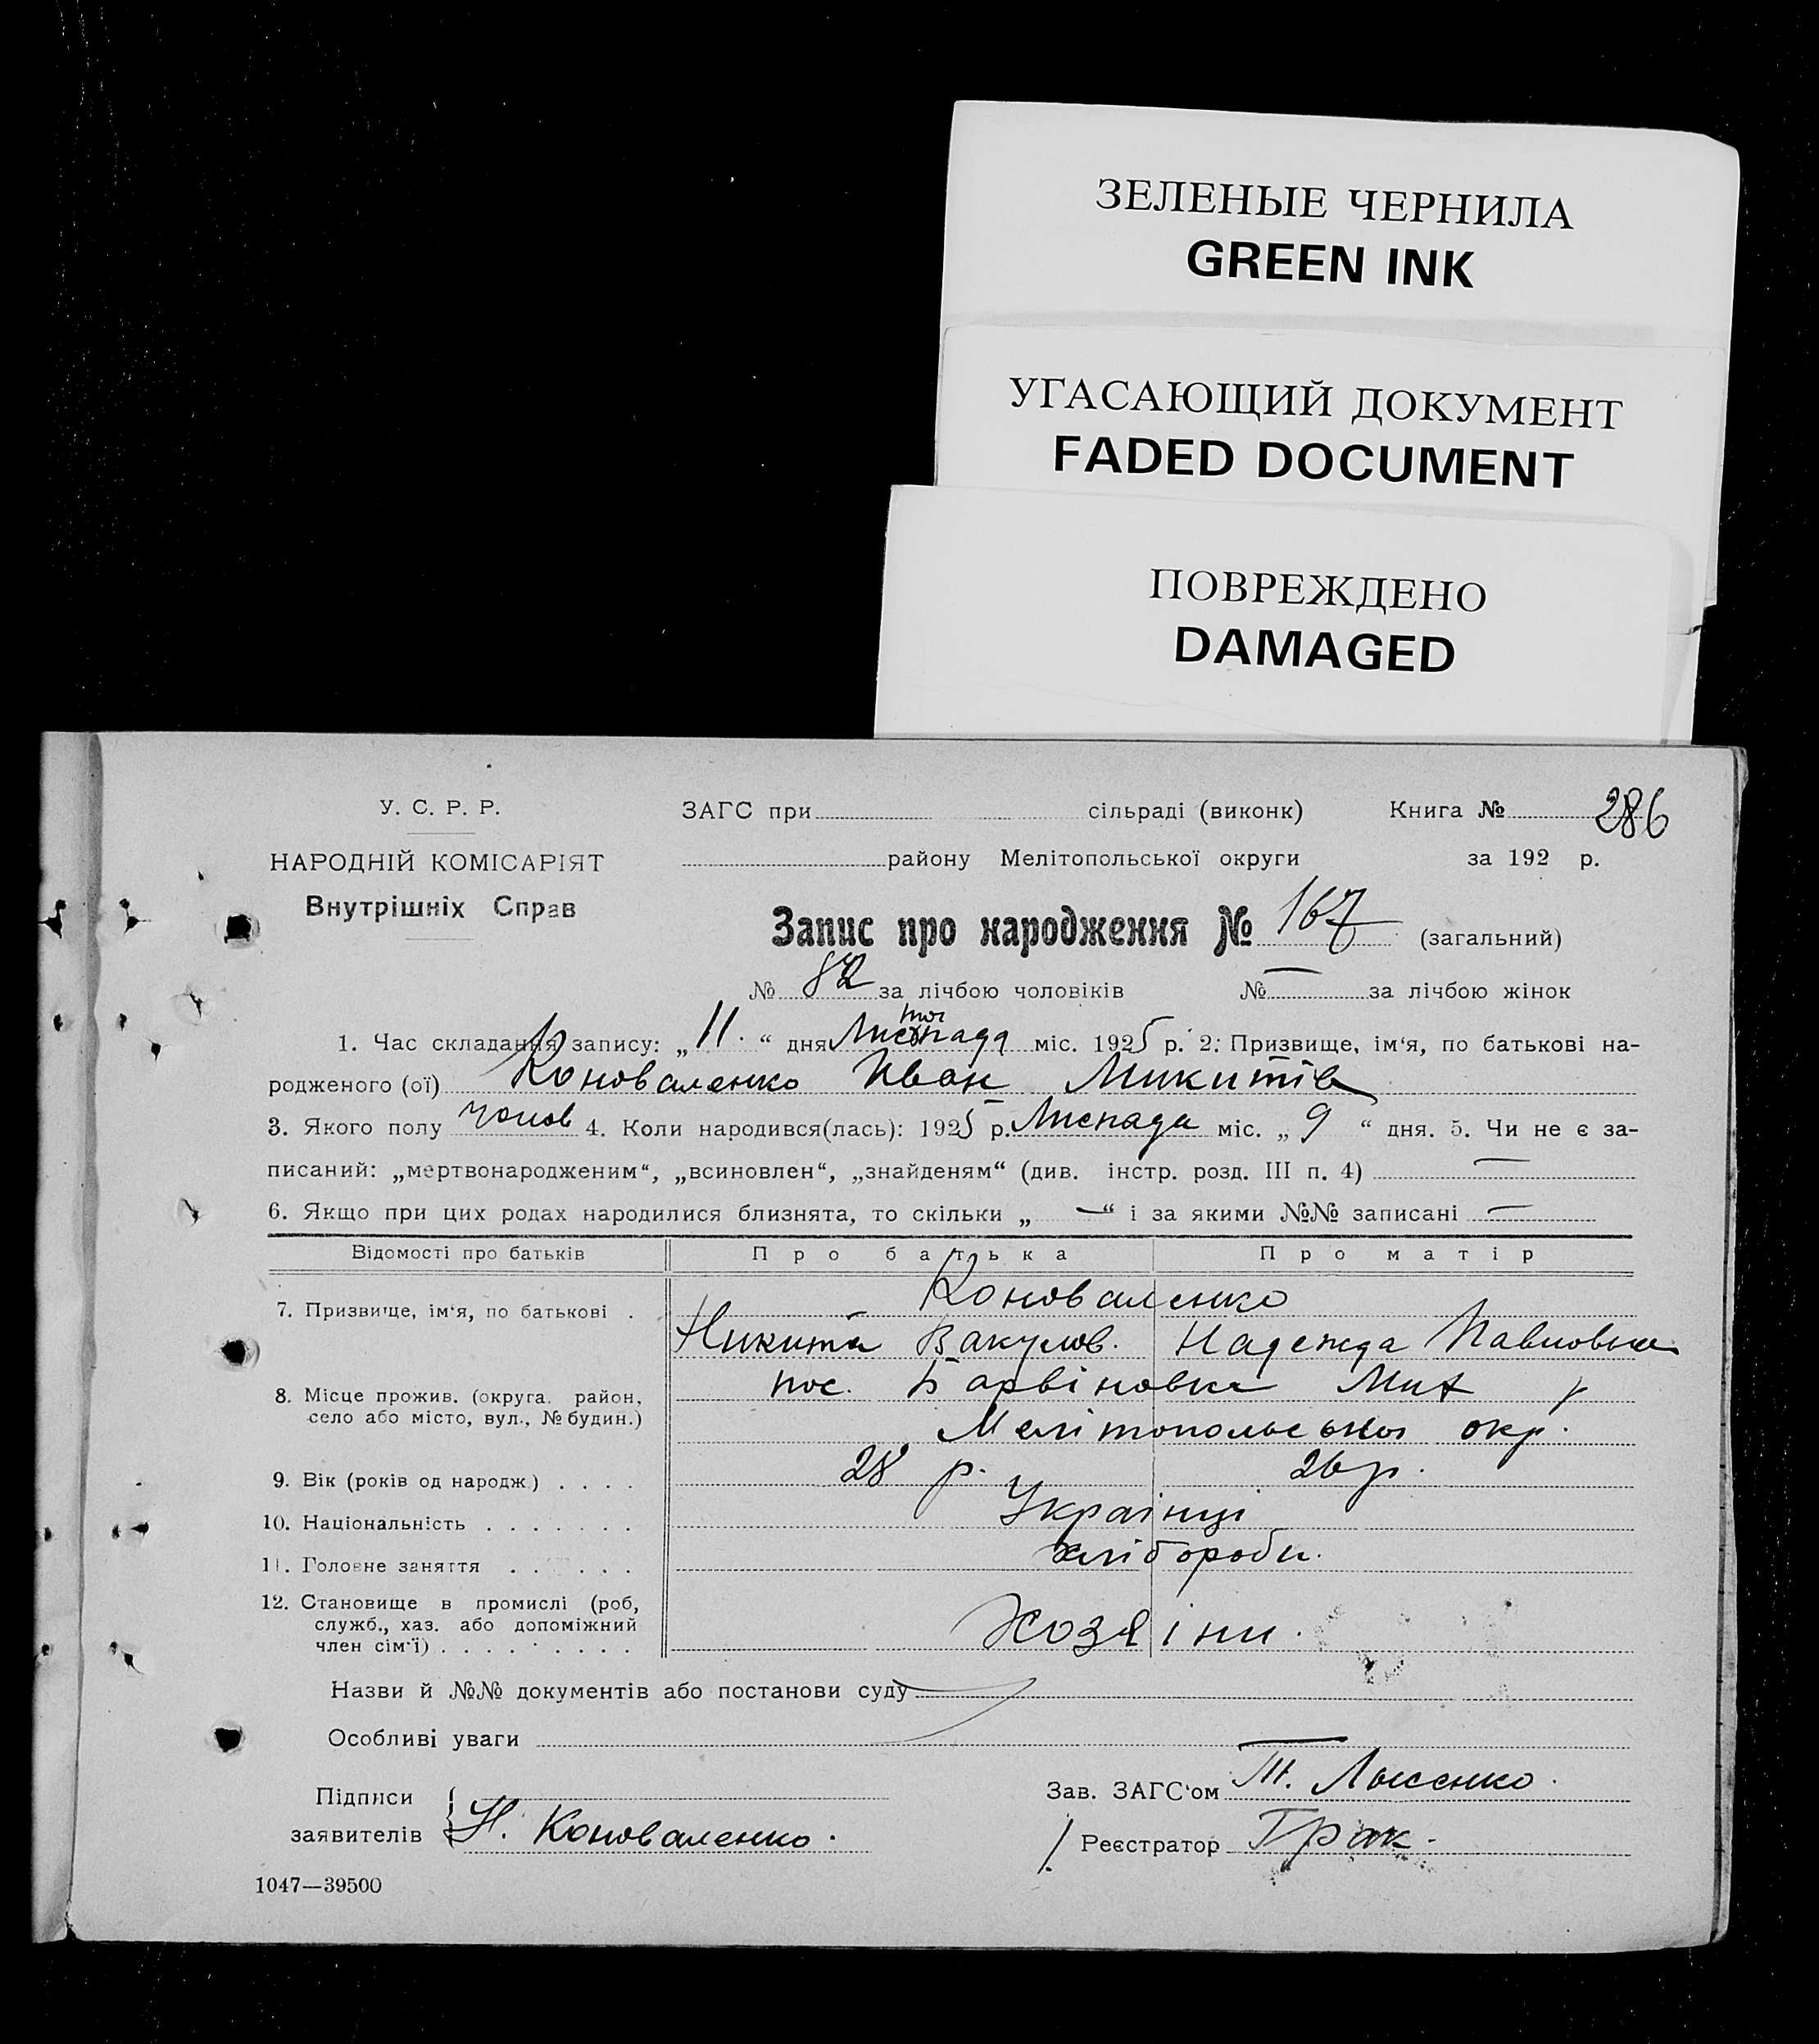 ЗЕЛЕНЫЕ ЧЕРНИЛА
GREEN INK
УГАСАЮЩИЙ ДОКУМЕНТ
FADED DOCUMENT
ПОВРЕЖДЕНО
DAMAGED
У. С. Р. Р.
НАРОДНІЙ КОМІСАРІЯТ
Внутрішніх Справ
ЗАГС при сільраді (виконк) Книга № 286
району Мелітопольської округи за 192 р.
Запис про народження № 167 (загальний)
№ 82 за лічбою чоловіків № — за лічбою жінок
1. Час складання запису: „ 11. “ дня Листопада міс. 1925 р. 2. Призвище, ім‘я, по батькові на-
родженого (ої) Коноваленко Иван Микитів
3. Якого полу чолов 4. Коли народився(лась): 1925 р. Лиспада міс. „ 9 “ дня. 5. Чи не є за-
писаний: „мертвонародженим“, „всиновлен“, „знайденям“ (див. інстр. розд. III п. 4) —
6. Якщо при цих родах народилися близнята, то скільки „ — “ і за якими №№ записані —
Відомості про батьків Про батька Про матір
7. Призвище, ім‘я, по батькові . Коноваленко
Никита Вакулов. Надежда Павловна
8. Місце прожив. (округа, район, пос. Барвіновка Мих р
село або місто, вул., № будин.) Мелітопольської окр.
9. Вік (років од народж) . . . . 28 р. 26 р.
10. Національність . . . . . . . Українці
11. Головне заняття . . . . . . хлібороби.
12. Становище в промислі (роб,
служб., хаз. або допоміжний
член сім‘ї) . . . . . . . . . Хозяіни.
Назви й №№ документів або постанови суду
Особливі уваги
Підписи
заявителів Н. Коноваленко.
Зав. ЗАГС‘ом Т. Лысенко.
Реєстратор Грак.
1047—39500